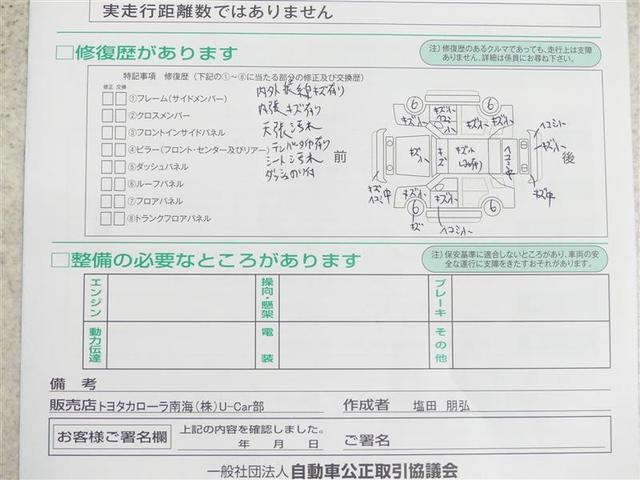 実走行距離数ではありません
□修復歴があります
注）修復歴のあるクルマであっても、走行上は支障
ありません。詳細は係員にお尋ね下さい。
特記事項 修復歴（下記の①～⑧に当たる部分の修正及び交換歴）
修正 交換
①フレーム（サイドメンバー）
②クロスメンバー
③フロントインサイドパネル
④ピラー（フロント・センター及びリアー）
⑤ダッシュパネル
⑥ルーフパネル
⑦フロアパネル
⑧トランクフロアパネル
内張キズ有り
天張汚れ
シート汚れ
前
後
6 6
6 6
□整備の必要なところがあります
注）保安基準に適合しないところがあり、車両の安
全な運行に支障をきたすおそれがあります。
エンジン
操向・懸架
ブレーキ
動力伝達
電装
その他
備考
販売店 トヨタカローラ南海（株）U-Car部 作成者 塩田 朋弘
お客様ご署名欄
上記の内容を確認しました。
年 月 日
ご署名
一般社団法人 自動車公正取引協議会